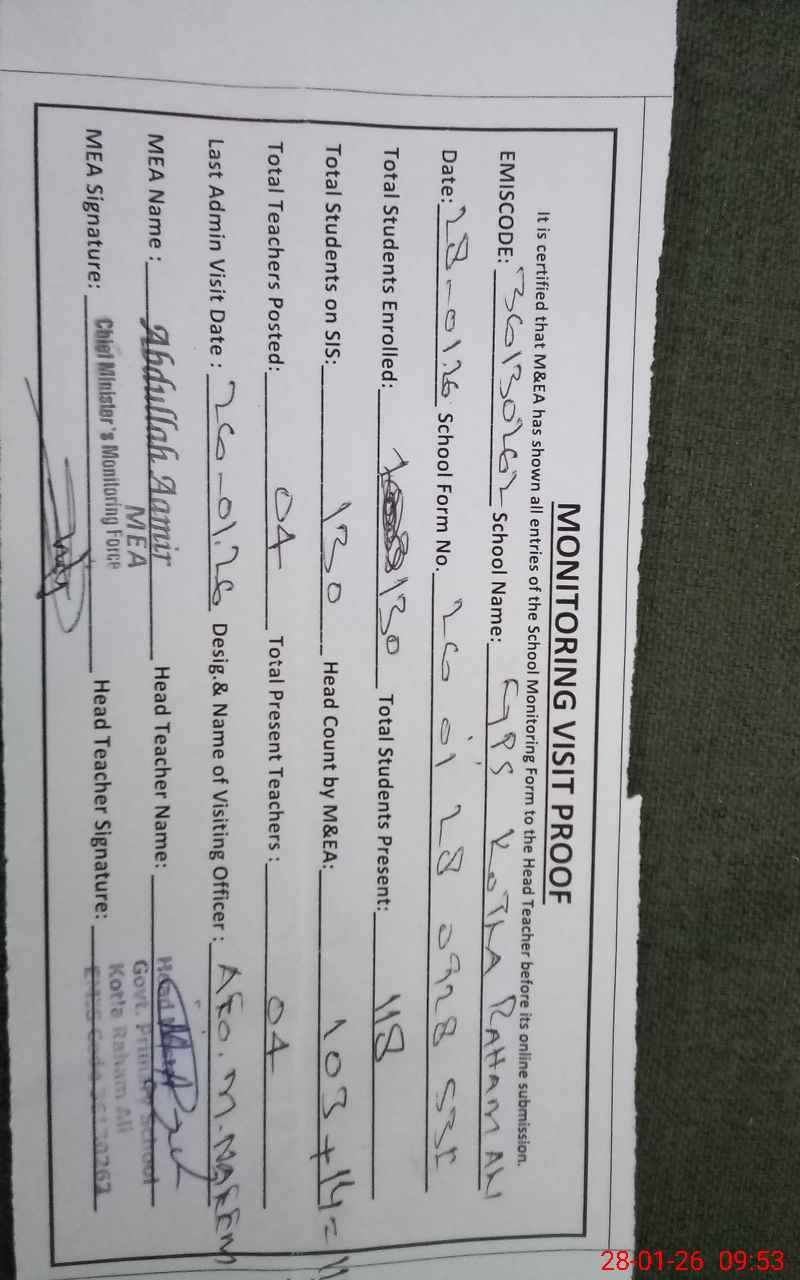 MONITORING VISIT PROOF
It is certified that M&EA has shown all entries of the School Monitoring Form to the Head Teacher before its online submission.
EMISCODE: 36130262 School Name: GPS KOTLA RAHAM ALI
Date: 28-01.26 School Form No. 26 01 28 0928 535
Total Students Enrolled: 130 Total Students Present: 118
Total Students on SIS: 130 Head Count by M&EA: 103+14=
Total Teachers Posted: 04 Total Present Teachers : 04
Last Admin Visit Date : 26-01.26 Desig.& Name of Visiting Officer : AEO. M. NAEEM
MEA Name : Abdullah Aamir Head Teacher Name:
MEA
Chief Minister's Monitoring Force
MEA Signature: Head Teacher Signature:
Head
Govt. Primary School
Kotla Raham Ali
EMIS Code 36130262
28-01-26 09:53